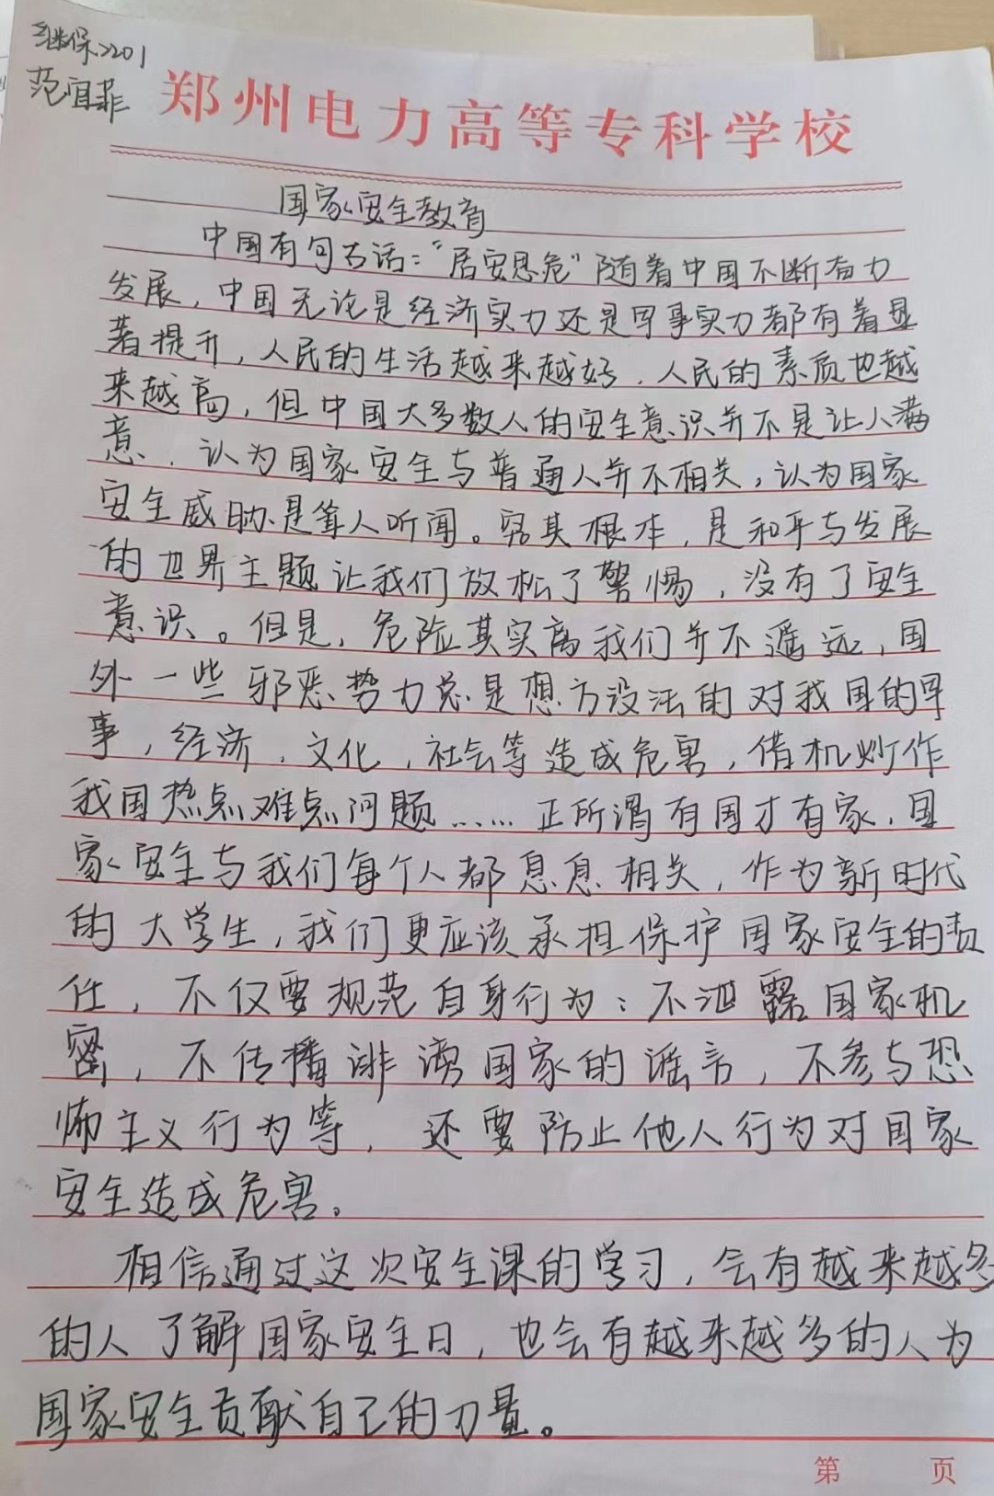 继保2201
范宜菲
郑州电力高等专科学校
国家安全教育
中国有句古话：“居安思危”随着中国不断奋力
发展，中国无论是经济实力还是军事实力都有着显
著提升，人民的生活越来越好，人民的素质也越
来越高，但中国大多数人的安全意识并不是让人满
意，认为国家安全与普通人并不相关，认为国家
安全威胁是耸人听闻。究其根本，是和平与发展
的世界主题让我们放松了警惕，没有了安全
意识。但是，危险其实离我们并不遥远，国
外一些邪恶势力总是想方设法的对我国的军
事，经济，文化，社会等造成危害，借机炒作
我国热点难点问题……正所谓有国才有家，国
家安全与我们每个人都息息相关，作为新时代
的大学生，我们更应该承担保护国家安全的责
任，不仅要规范自身行为：不泄露国家机
密，不传播诽谤国家的谣言，不参与恐
怖主义行为等，还要防止他人行为对国家
安全造成危害。
相信通过这次安全课的学习，会有越来越多
的人了解国家安全日，也会有越来越多的人为
国家安全贡献自己的力量。
第 页